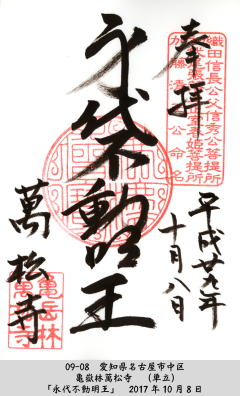 奉拝
織田信長公父信秀公菩提所
加藤清正公命名
永代不動明王
平成廿九年
十月八日
萬松寺
亀岳林
萬松寺
09-08 愛知県名古屋市中区
亀嶽林萬松寺 (単立)
「永代不動明王」 2017年10月8日